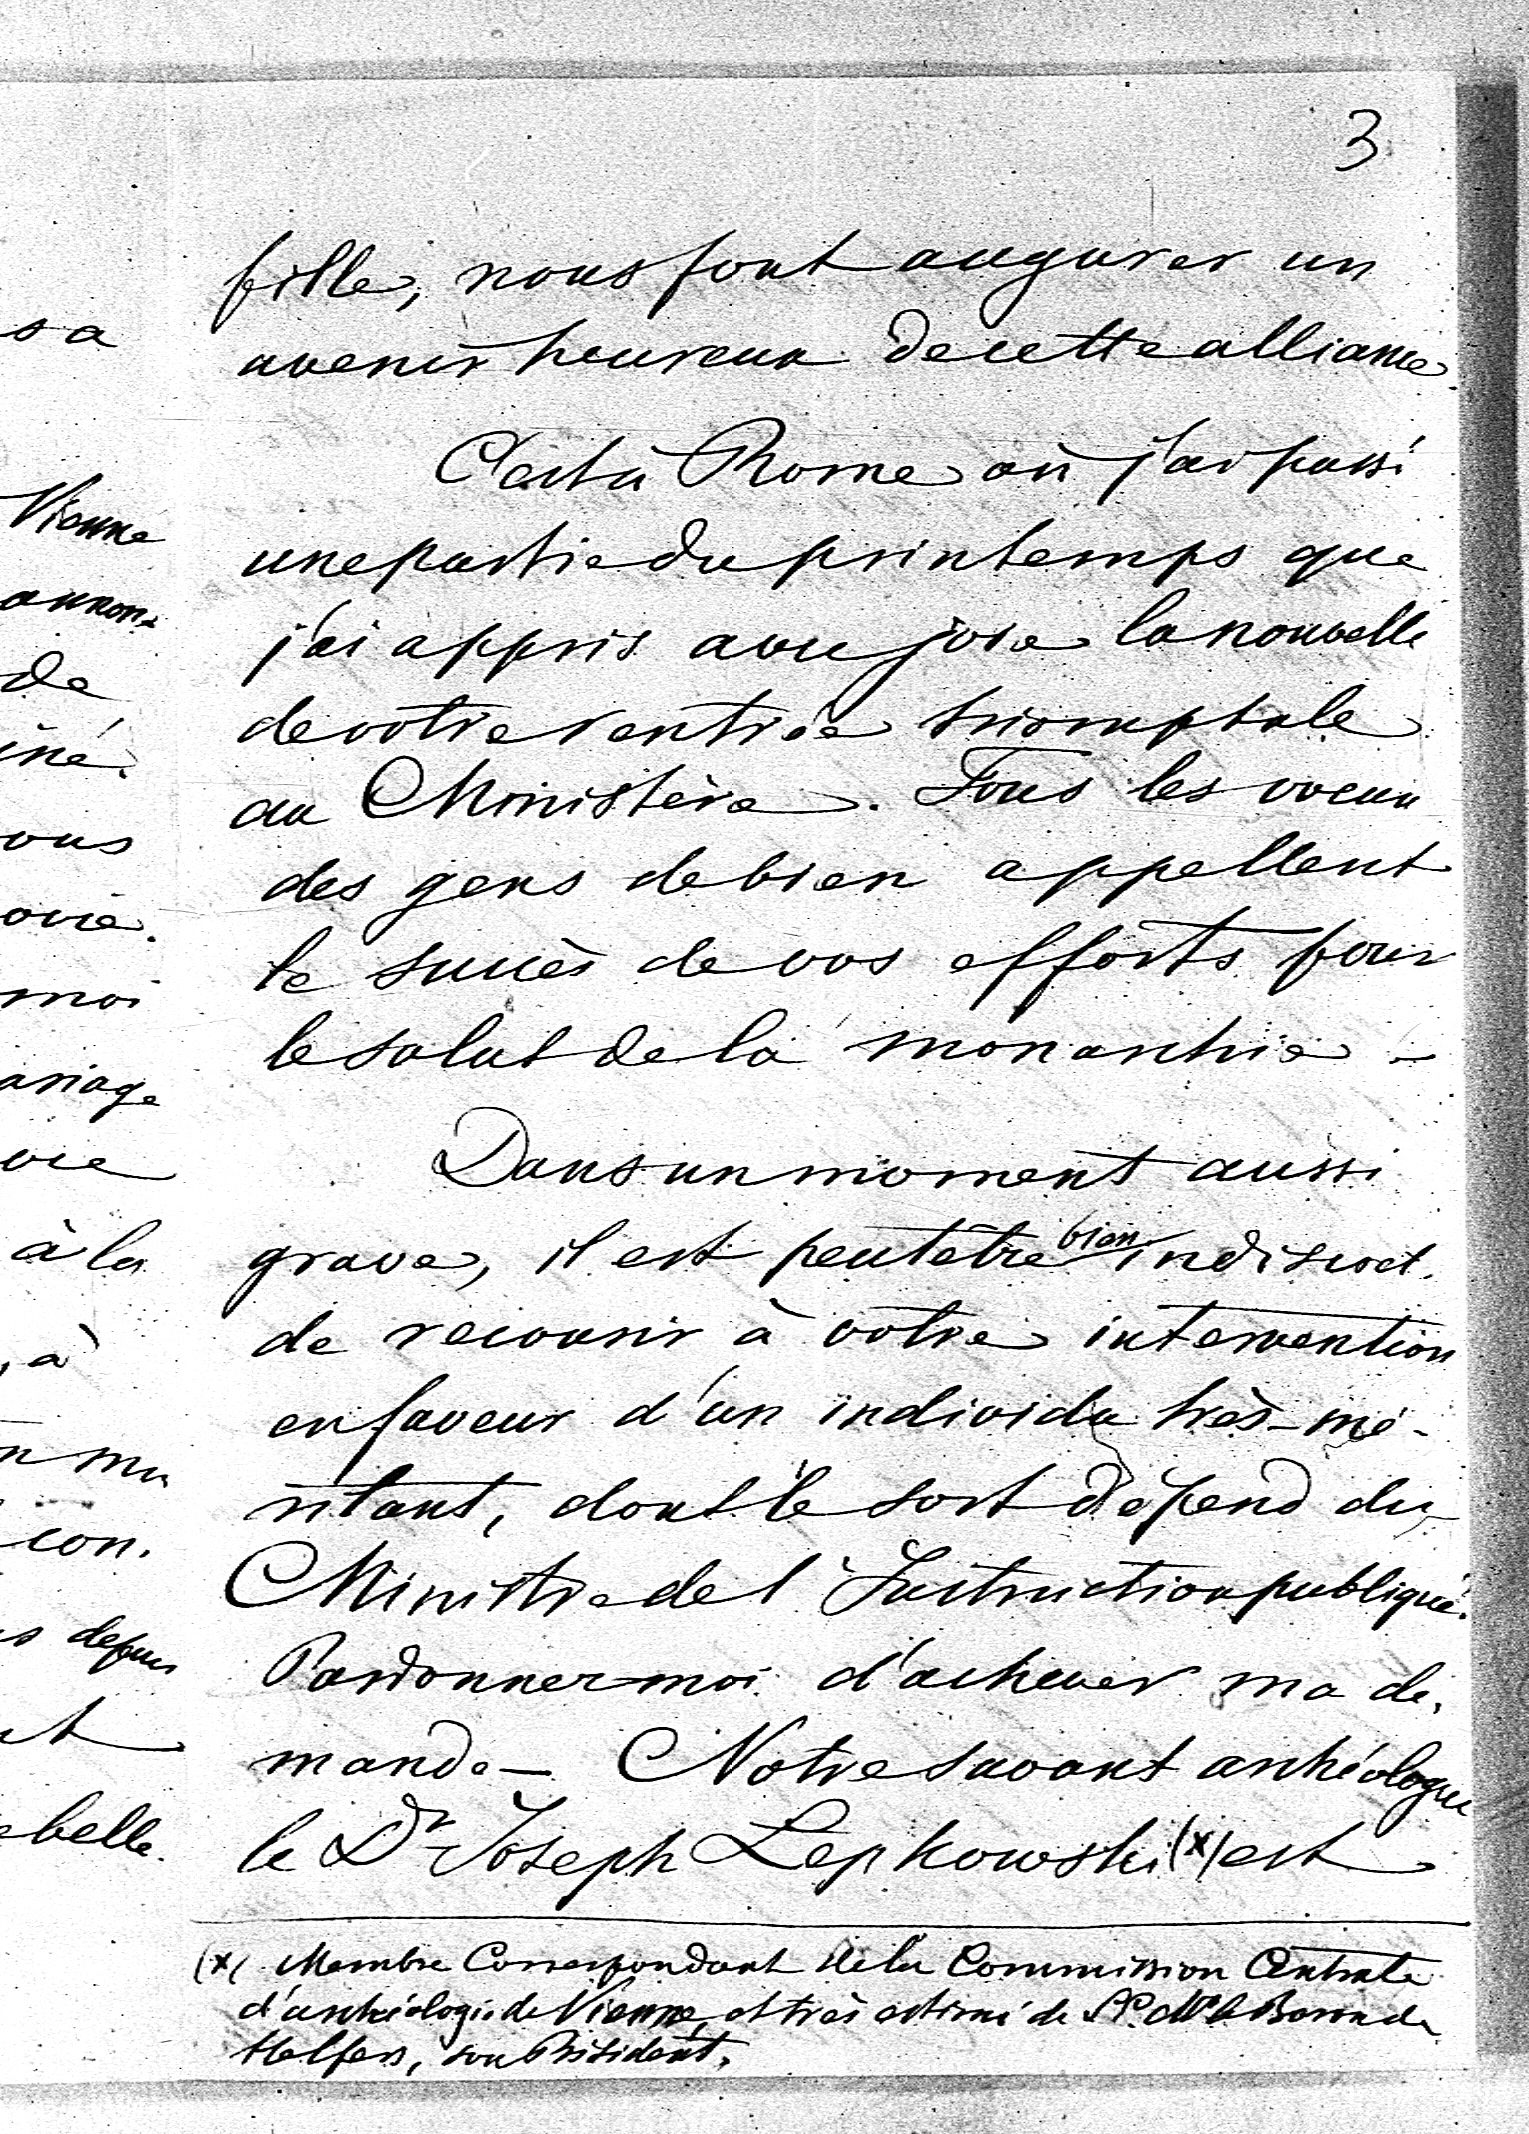 3
fille, nous font augurer un
avenir heureux de cette alliance.
C'est à Rome où j'ai passé
une partie du printemps que
j'ai appris avec joie la nouvelle
de votre rentrée triomphale
au Ministère. Tous les voeux
des gens de bien appellent
le succès de vos efforts pour
le salut de la monarchie –
Dans un moment aussi
grave, il est peutêtre bien indiscret
de recourir à votre intervention
en faveur d'un individu très-mé-
ritant, dont le sort dépend du
Ministre de l'Instruction publique.
Pardonner-moi d'achever ma de-
mande – Notre savant archéologue
le Dr Joseph Lepkowski (x) est
(x) Membre Correspondant de la Commission Centrale
d'archéologie de Vienne, et très estimé de Mr le Baron de
Helfers, son Président.
sa
Vienne
annon-
de
iné.
ous
ovie.
moi
ariage
vie
à la
, à
n ma
con-
s depuis
belle.